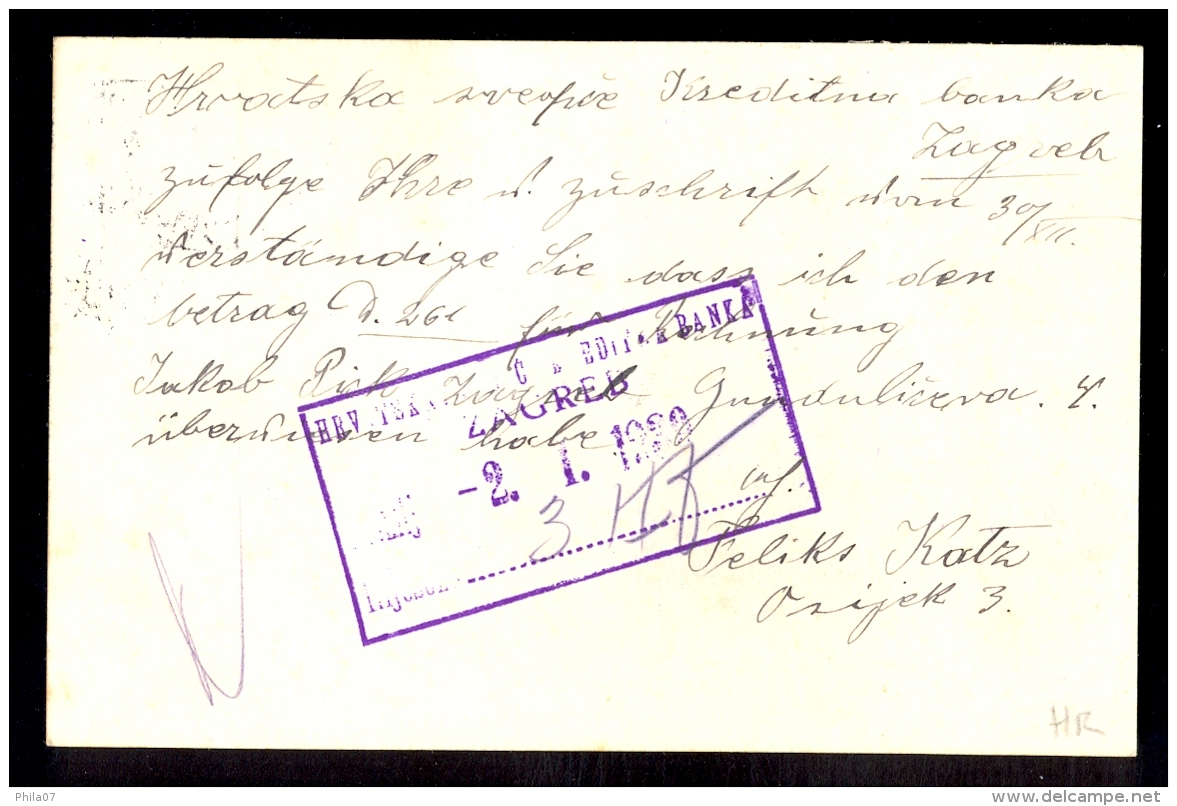 Hrvatska sveopće Kreditna banka
Zagreb
zufolge Ihre w. zuschrift vom 30/XII.
verständige Sie dass ich den
betrag D. 261 für Rechnung
Jakob Pick Zagreb Gundulićeva. 4.
überwiesen habe
Feliks Katz
Osijek 3.
BANKA
ZAGREB
-2. I. 19
3
HR
Phila07
www.delcampe.net